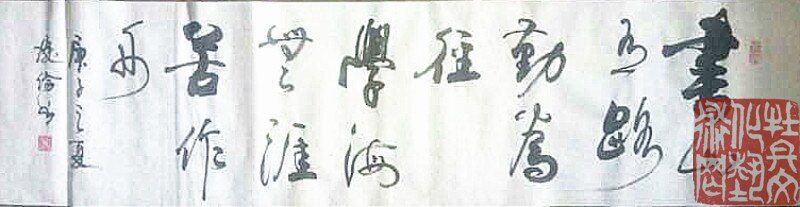 書山
有路
勤為
徑
學海
無涯
苦作
舟
庚子之夏